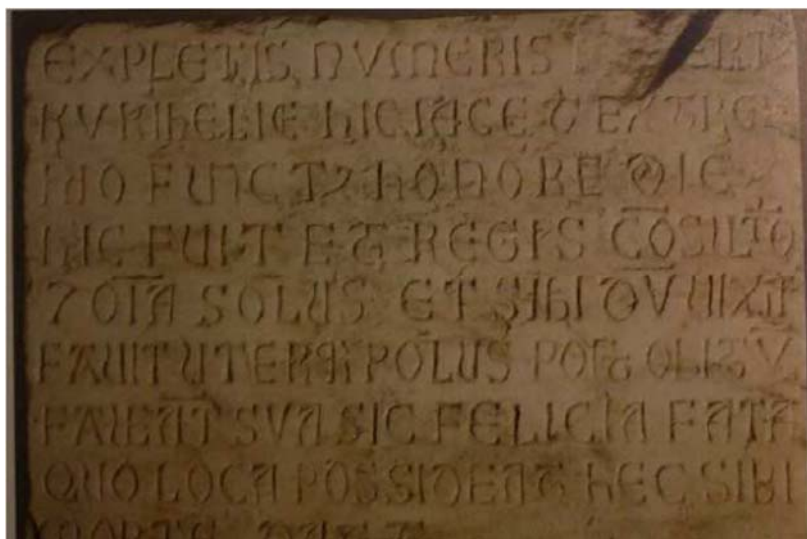 EXPLETIS NVMERIS
hIC JACET EXTRE
MO FUNCT hONORE DIE
hIC FUIT ET REGIS CŌSILIO
7 OĪA SOLUS ET SIbI DV̄ UIXIT
FAUIT UTERQ POLUS POST OBITV̄
FAUEAT SVA SIC FELICIA FATA
QUO LOCA POSSIDEAT hEC SIBI